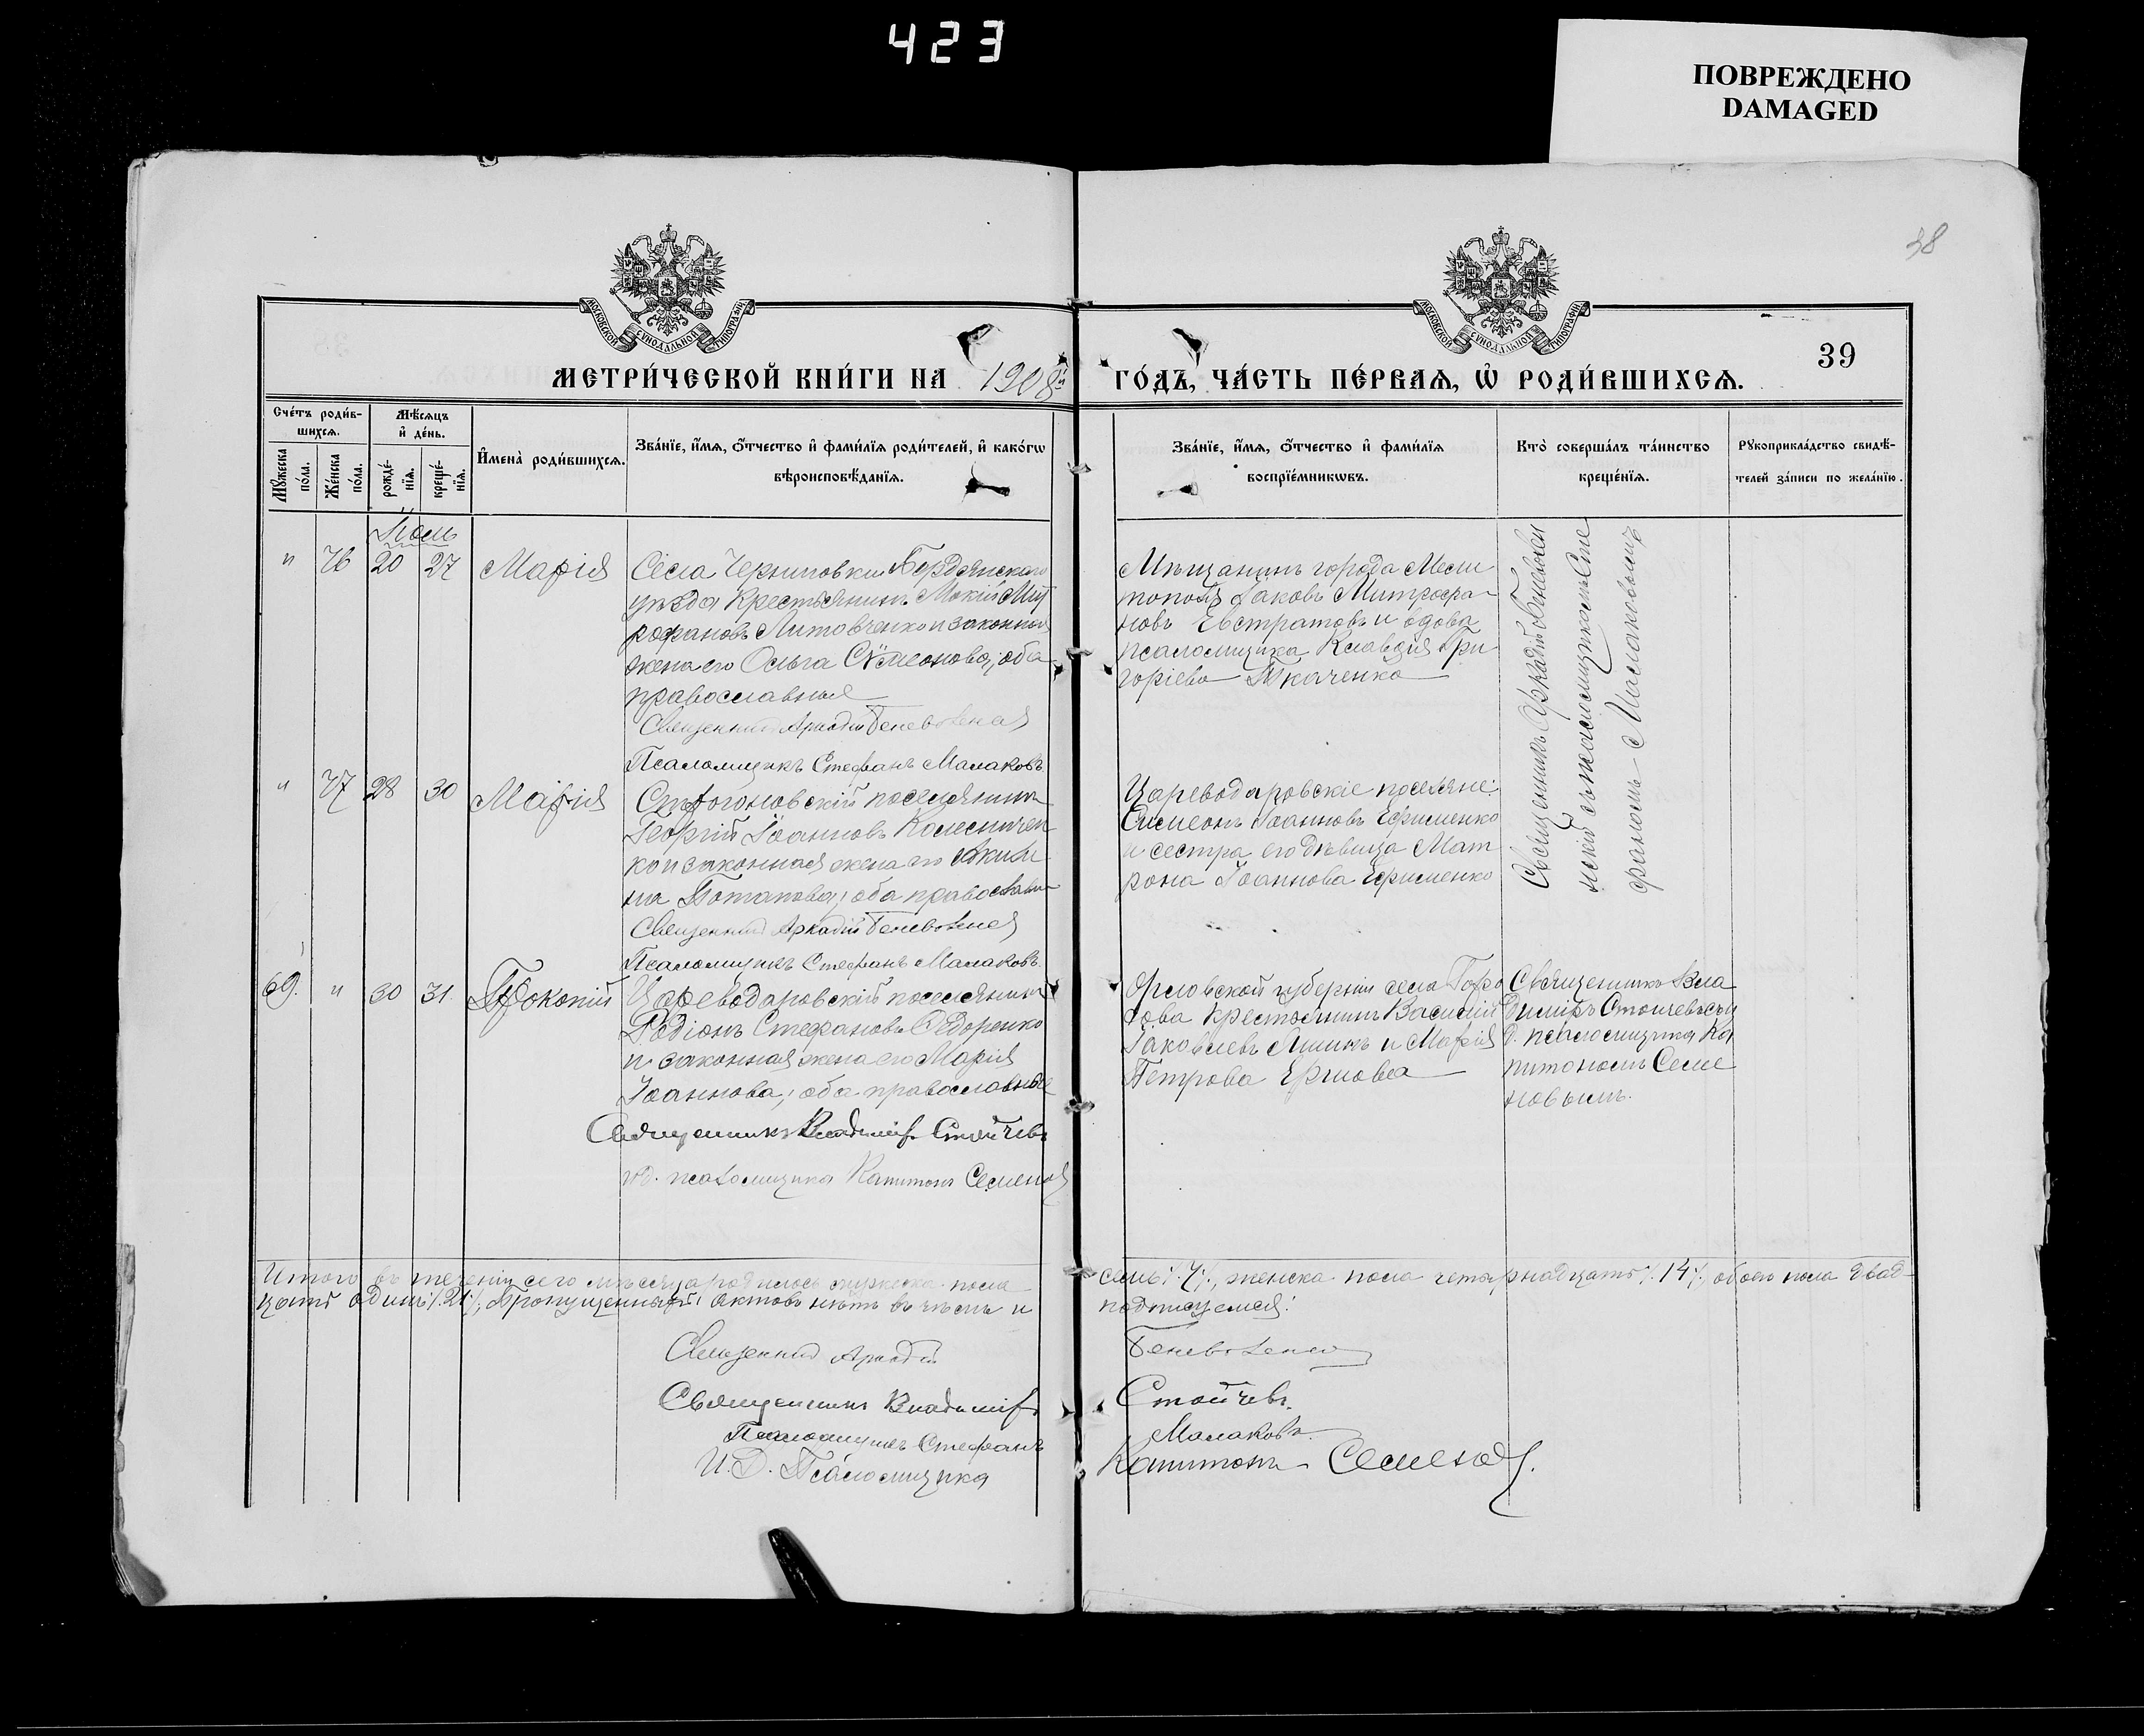 423
ПОВРЕЖДЕНО
DAMAGED
38
39
МОСКОВСКОЙ СУНОДАЛЬНОЙ ТИПОГРАФІИ
МОСКОВСКОЙ СУНОДАЛЬНОЙ ТИПОГРАФІИ
МЕТРИ́ЧЕСКОЙ КНИ́ГИ НА 1908й
ГО́ДЪ, ЧА́СТЬ ПЕ́РВАѦ, Ѡ҆ РОДИ́ВШИХСѦ.
Сче́тъ роди́в-
шихсѧ.
Мѣ́сѧцъ
и҆ де́нь.
Мꙋ́жеска по́ла.
Же́нска по́ла.
рожде́-
нїѧ.
креще́-
нїѧ.
И҆мена̀ роди́вшихсѧ.
Зва́нїе, и҆́мѧ, ѻ҆́тчество и҆ фами́лїѧ роди́телей, и҆ како́гѡ
вѣроисповѣ́данїѧ.
Зва́нїе, и҆́мѧ, ѻ҆́тчество и҆ фами́лїѧ
воспрїе́мникѡвъ.
Кто̀ соверша́лъ та́инство
креще́нїѧ.
Рꙋкоприкла́дство свидѣ́-
телей за́писи по жела́нїю.
Іюль
" 76 20 27 Марія
Села Черниговки Бердянскаго
уѣзда крестьянинъ Мокій Мит
рофановъ Литовченко и законная
жена его Ольга Сѵмеонова; оба
православные
Священникъ Аркадій Беневоленскій
Псаломщикъ Стефанъ Малаковъ.
Мѣщанинъ города Мели
тополя Іаковъ Митрофа-
новъ Евстратовъ и вдова
псаломщика Клавдія Гри-
горіева Ткаченко
Священникъ Аркадій Беневолен
скій съ псаломщикомъ Сте
фаномъ Малаковымъ
" 77 28 30 Марія
Строгоновскій поселянинъ
Георгій Іоанновъ Колесничен
ко и законная жена его Акили
на Потапова; оба православн
Священникъ Аркадій Беневоленскій
Псаломщикъ Стефанъ Малаковъ.
Цареводаровскіе поселяне:
Симеонъ Іоанновъ Ефименко
и сестра его дѣвица Мат
рона Іоаннова Ефименко
69. " 30 31. Прокопій
Цареводаровскій поселянинъ
Родіонъ Стефановъ Ѳедоренко
и законная жена его Марія
Іоаннова; оба православные
Священникъ Владиміръ Стойчевъ
и.д. псаломщика Капитонъ Семеновъ
Орловской губерніи села Горо
дова крестьянинъ Василій
Іаковлевъ Яшинъ и Марія
Петрова Ершова
Священникъ Вла
диміръ Стойчевъ съ и
д. псаломщика Ка
питономъ Семе
новымъ.
Итого въ теченіи сего мѣсяца родилось мужеска пола
семь /.7./, женска пола четырнадцать /.14./, обоего пола двад-
цать одинъ /.21./; пропущенныхъ актовъ нѣтъ въ чемъ и
подписуемся:
Священникъ Аркадій
Беневоленскій
Священникъ Владиміръ
Стойчевъ.
Псаломщикъ Стефанъ
Малаковъ.
И.Д. Псаломщика
Капитонъ Семеновъ.